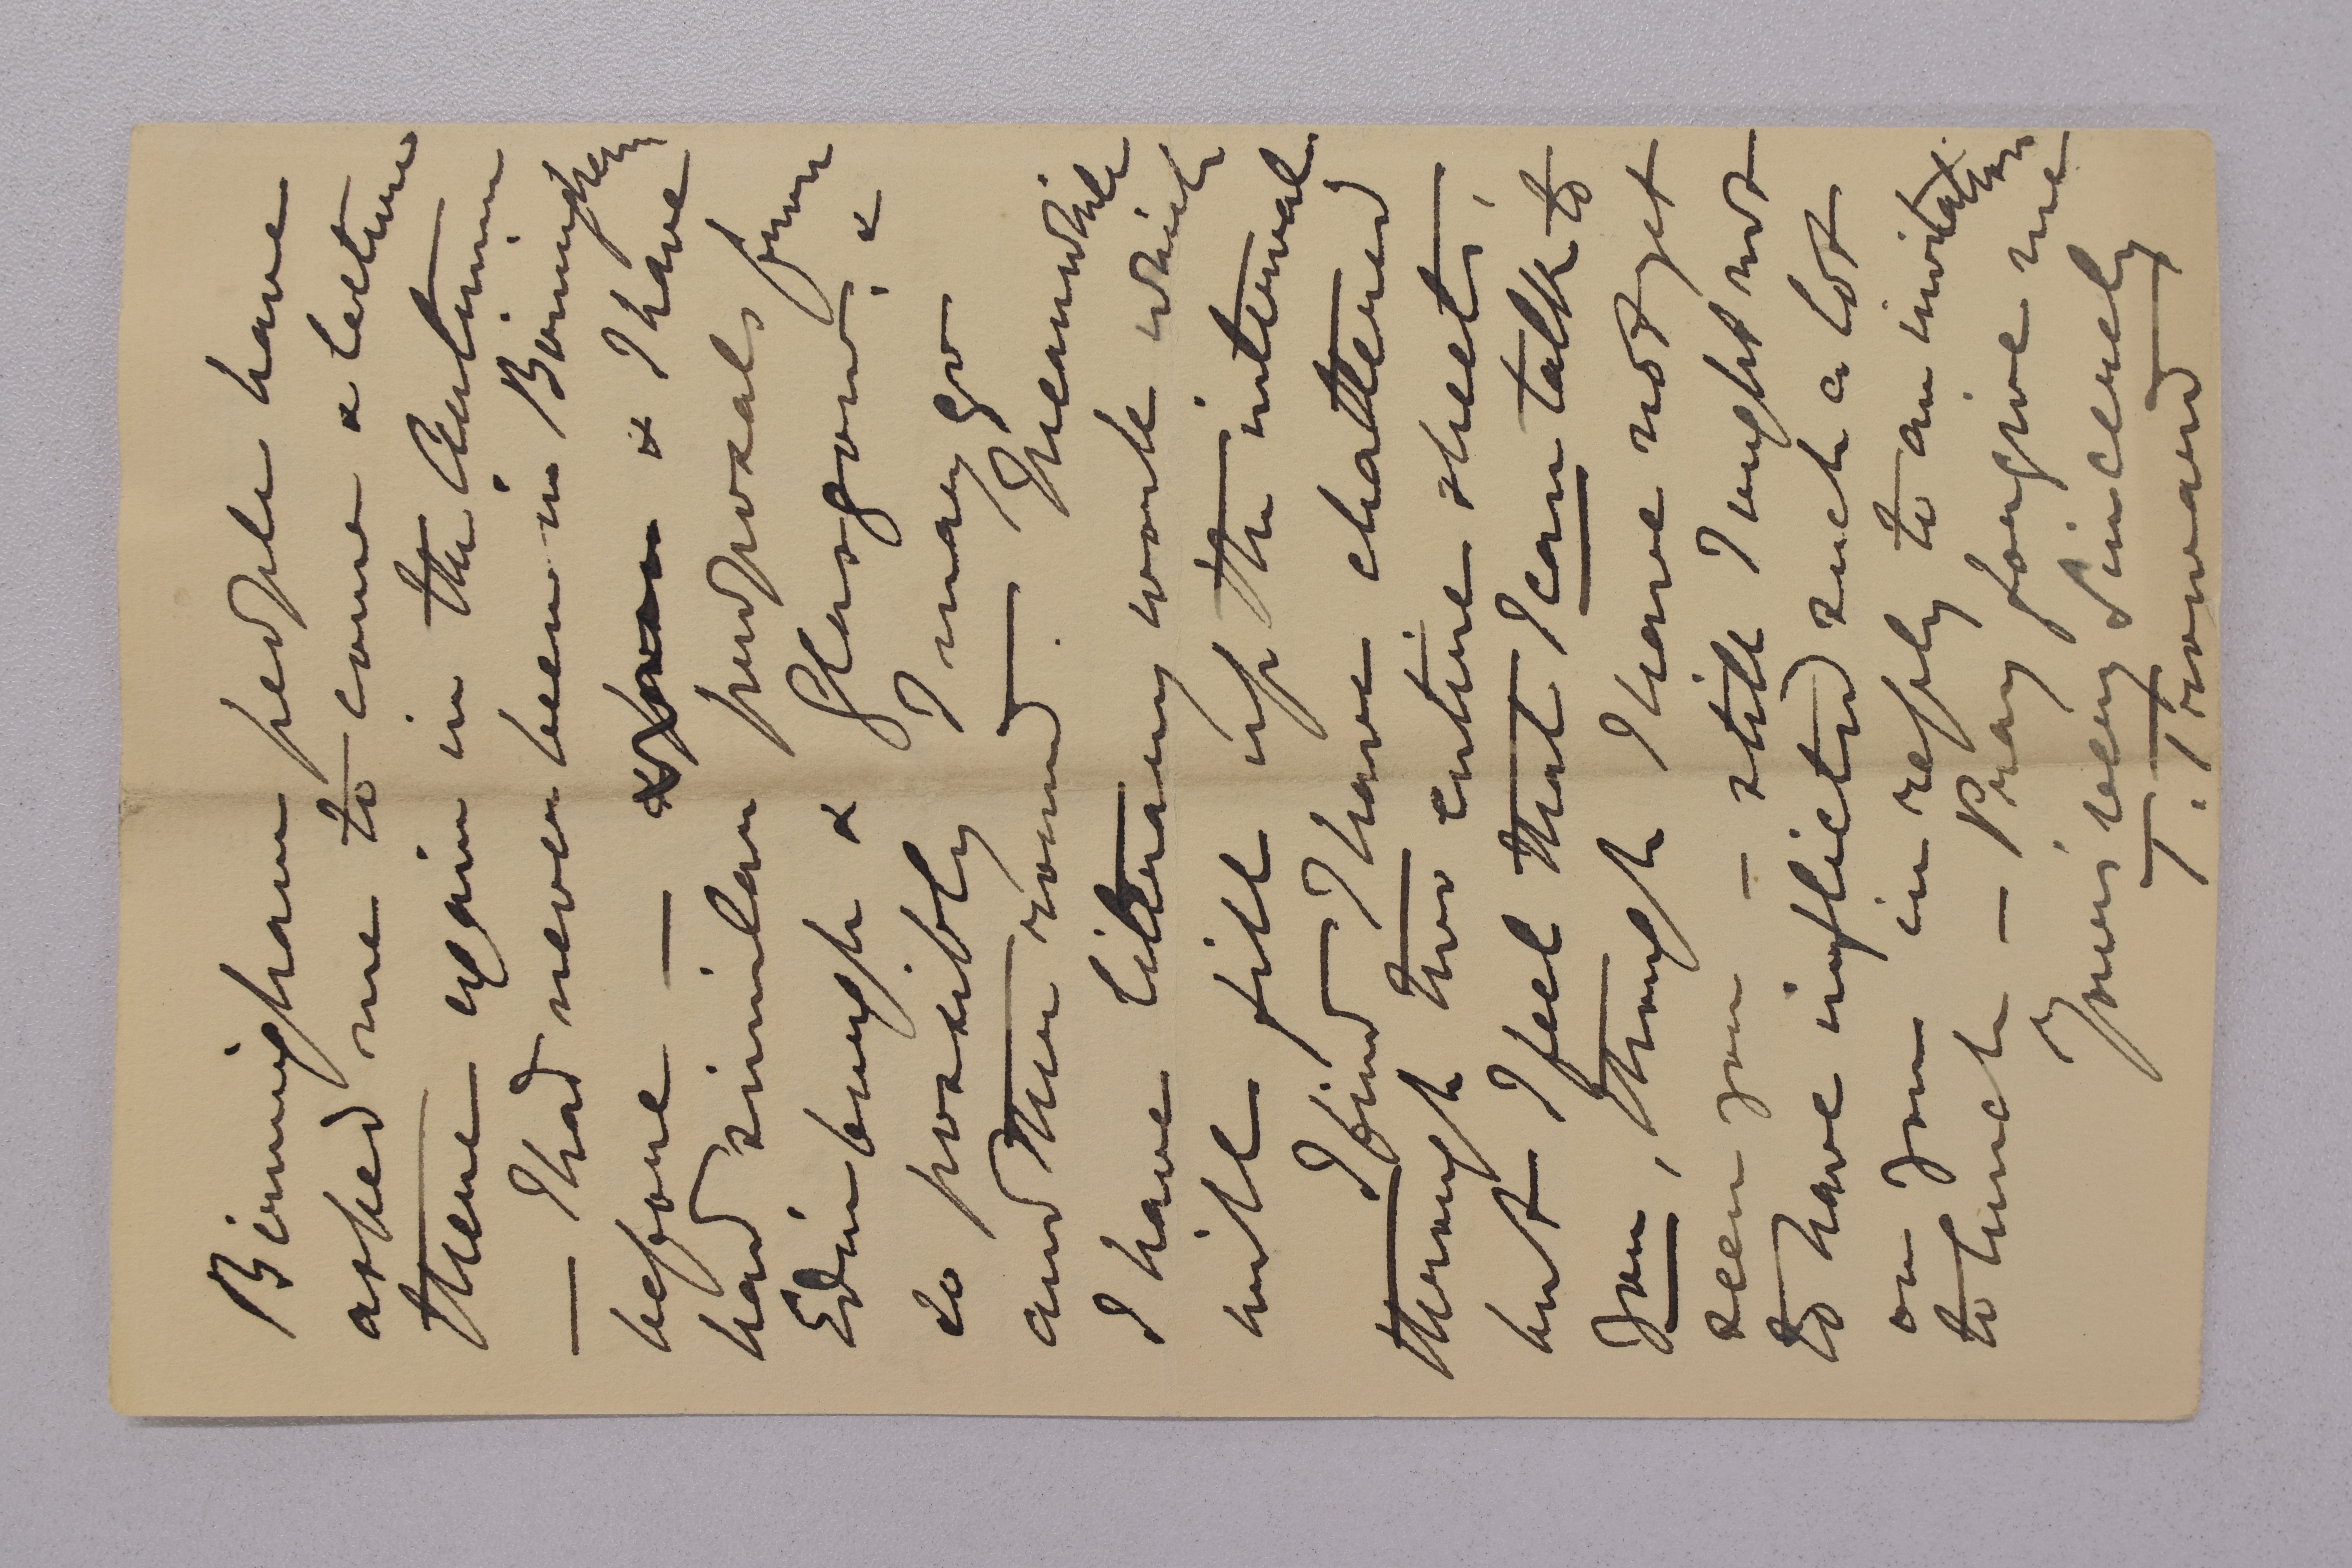 Birmingham people have
asked me to come & lecture
there again in the Autumn
— I had never been in Birmingham
before — & I have
had similar proposals from
Edinburgh & Glasgow: &
so possibly I may go
and tour round. Meanwhile
I have literary work which
will fill up the interval.
I find I have chattered
through two entire sheets,
but I feel that I can talk to
you, though I have not yet
seen you — still I ought not
to have inflicted such a lot
on you in reply to an invitation
to lunch — Pray forgive me
Yours very sincerely